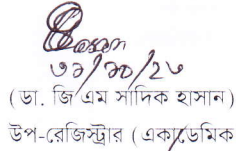 ৩১/১০/২৩
(ডা. জি এম সাদিক হাসান)
উপ-রেজিস্ট্রার (একাডেমিক